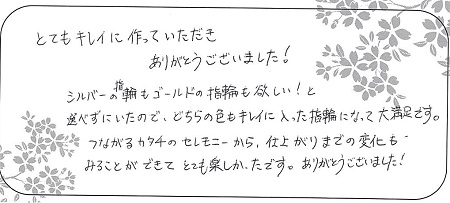 とてもキレイに作っていただき
ありがとうございました!
シルバーの指輪もゴールドの指輪も欲しい!と
選べずにいたので、どちらの色もキレイに入った指輪になって大満足です。
つながるカタチのセレモニーから、仕上がりまでの変化も
みることができてとても楽しかったです。ありがとうございました!